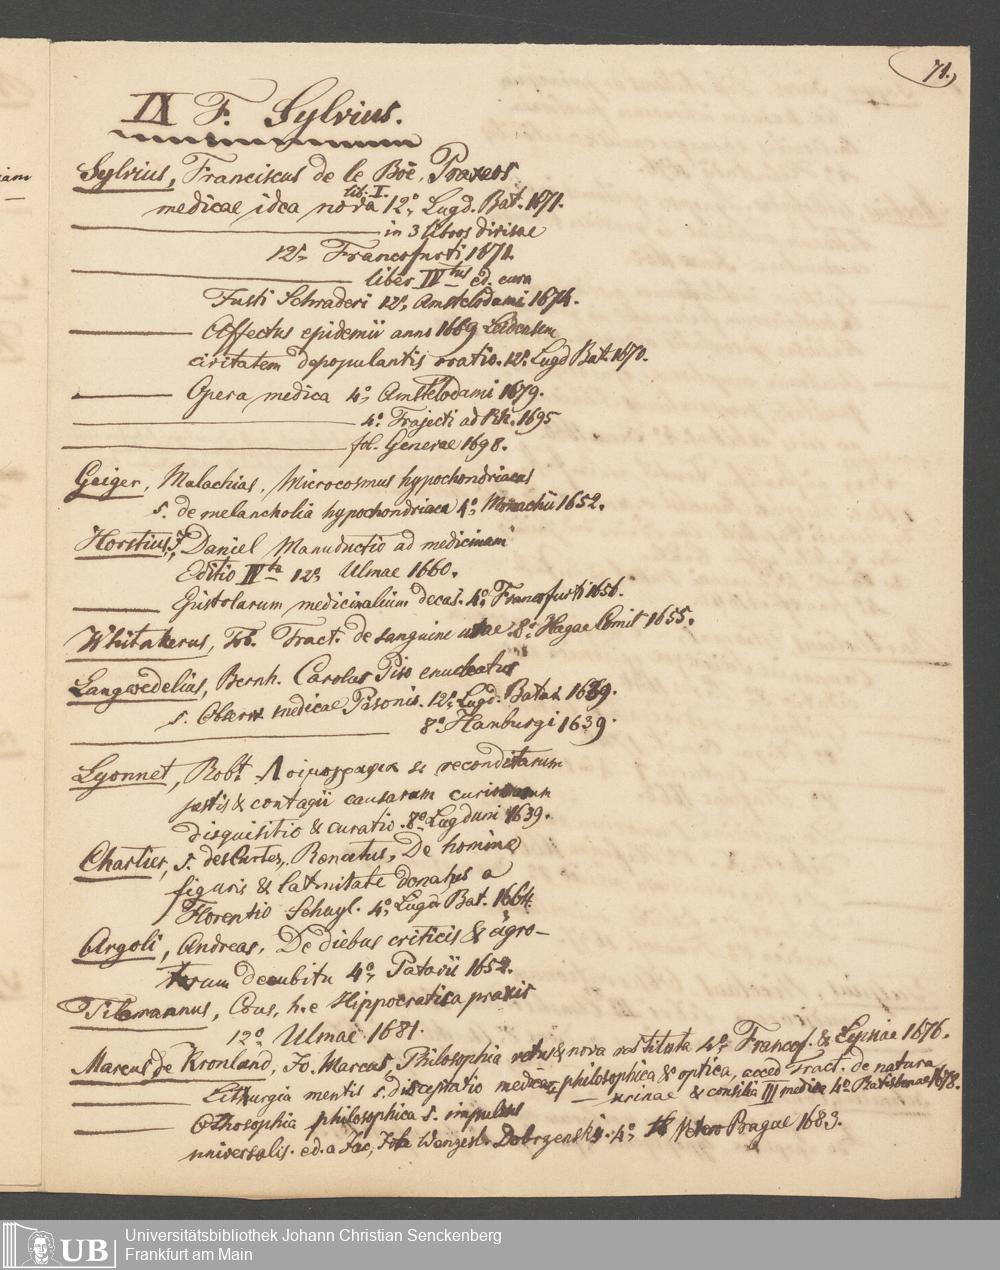 71.
IX F. Sylvius.
Sylvius, Franciscus de le Boë, Praxeos
medicae idea nova lib. I. 12º, Lugd. Bat. 1671.
in 3 libros divisae
12º, Francofurti 1671.
liber IVtus ed. cura
Justi Schraderi 12º, Amstelodami 1674.
Affectus epidemii anno 1669 Leidensem
civitatem depopulantis oratio. 12º, Lugd Bat. 1670.
Opera medica 4º, Amstelodami 1679.
4º, Trajecti ad Rh. 1695
fol. Generae 1698.
Geiger, Malachias, Microcosmus hypochondriacus
s. de melancholia hypochondriaca 4º, Monachii 1652.
Horstius, J. Daniel Manuductio ad medicinam
Editio IVta 12º, Ulmae 1660.
Epistolarum medicinalium decas. 4º, Francofurti 1656.
Whitakerus, Tob. Tract. de sanguine uvae 8º, Hagae Comit 1655.
Langwedelius, Bernh. Carolus Piso enucleatus
s. Observ. medicae Pisonis. 12º, Lugd. Batav. 1639.
8º Hamburgi 1639.
Lyonnet, Robt. Λοιμογραφια & reconditarum
pestis & contagii causarum curiosarum
disquisitio & curatio. 8º, Lugduni 1639.
Chartier, s. des Cartes, Renatus, De homine
figuris & latinitate donatus a
Florentio Schuyl. 4º, Lugd. Bat. 1664.
Argoli, Andreas, De diebus criticis & ägro-
torum decubitu 4º, Patavii 1652.
Tilemannus, Cous, h.e Hippocratica praxis
12º, Ulmae 1681.
Marcus de Kronland, Jo. Marcus, Philosophia vetus & nova restituta 4º, Francof. & Lipsiae 1676.
Liturgia mentis s. disceptatio medica, philosophica & optica, acced Tract. de natura
urinae & consilia III medica 4º Ratisbonae 1678.
Othosophia philosophica s. impulsus
universalis. ed. a Jac. Joh. Wenzesl. Dobrzensky. 4º, Vetero Pragae 1683.
UB
Universitätsbibliothek Johann Christian Senckenberg
Frankfurt am Main